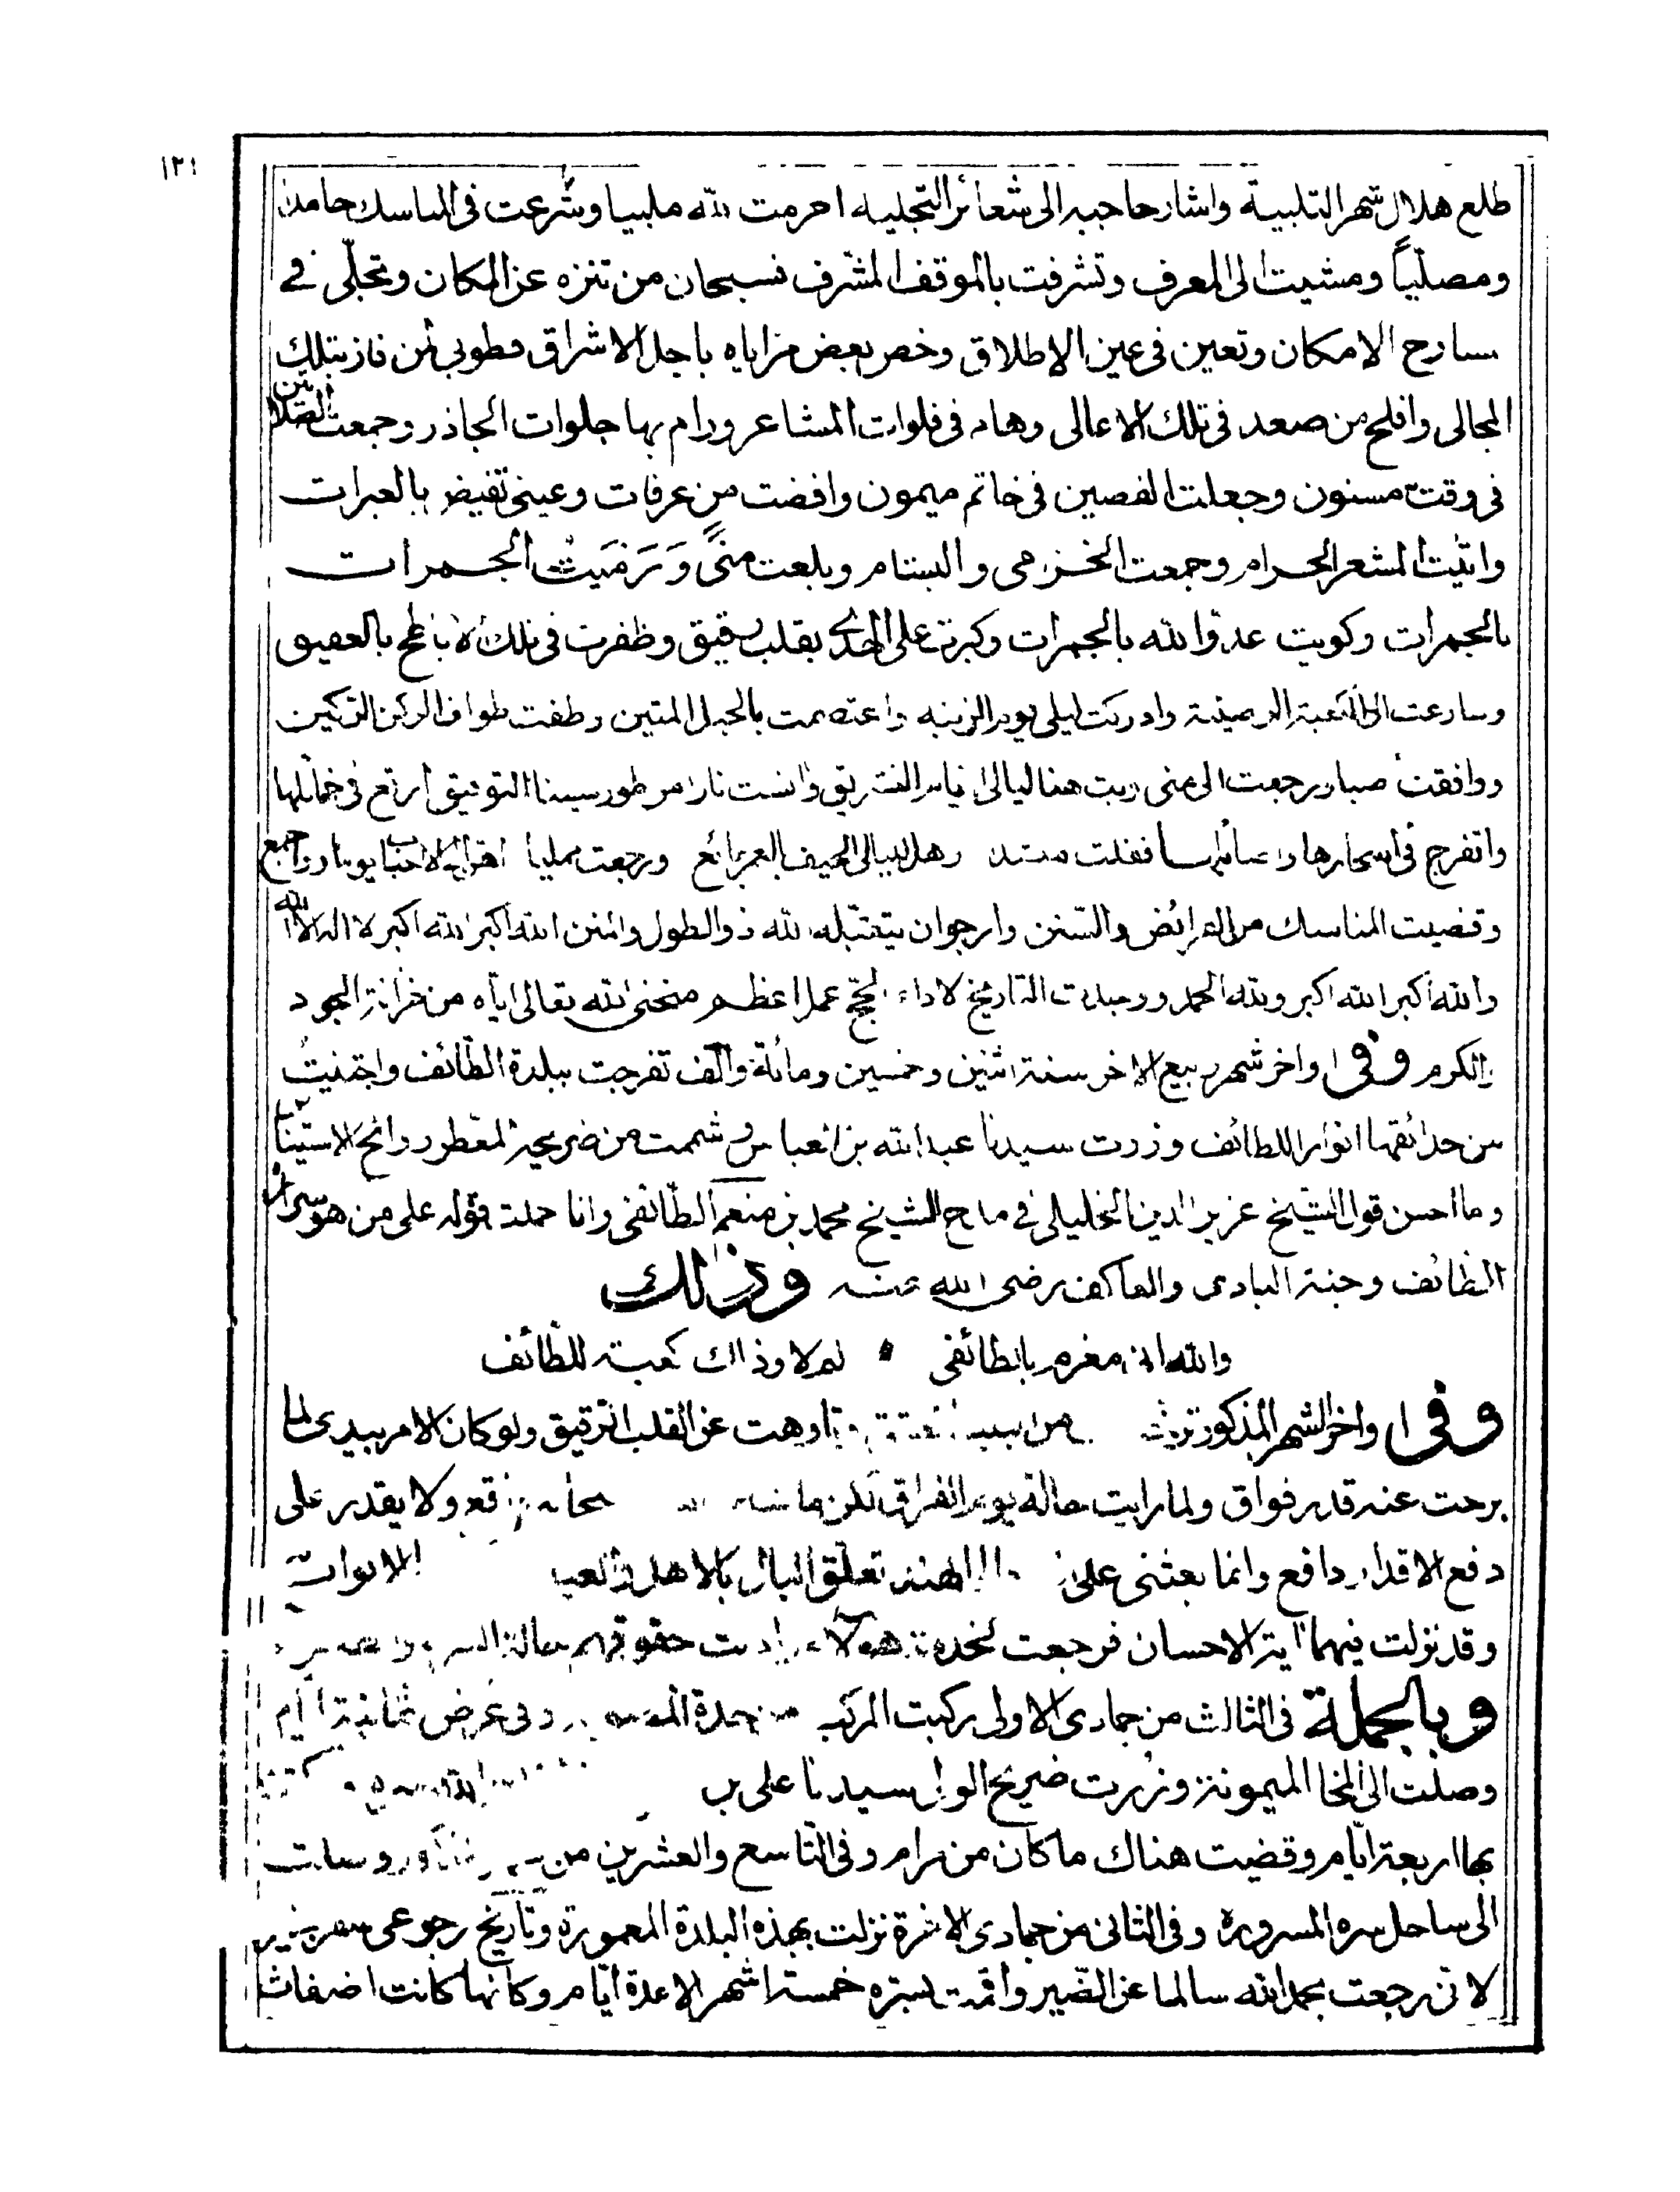 ١٢١
طلع هلال شهر التلبية واشار حاجبه الى شعائر التجليه احرمت لله ملبيا وشرعت فى المناسك حامدا
ومصلّياً ومشيت الى المعرف وتشرفت بالموقف المشرف فسبحان من تنزه عن المكان وتجلّى فے
مسارح الامكان وتعين فى عين الاطلاق وخص بعض مزاياه باجل الاشراق فطوبى لمن فاز بتلك
المجالى وافلح من صعد فى تلك الاعالى وهام فى فلوات المشاعر ورام بها جلوات الجاذر وجمعت الصلاتين
فى وقت مسنون وجعلت الفصين فى خاتم ميمون وافضت من عرفات وعينى تفيض بالعبرات
واتيت المشعر الحرام وجمعت الخزامى والبشام وبلغت منىً وَرَمَيتُ الجمرات
بالجمرات وكويت عدوّ الله بالجمرات وكبرت على الهدى بقلب رقيق وظفرت فى تلك الاباطح بالعقيق
وسارعت الى الكعبة الرصينة وادركت ليلى يوم الزينه واعتصمت بالحبل المتين وطفت طواف الركن الركين
ووافقت صبا ورجعت الى منى وبت هنا ليالى ايام التشريق وآنست نارا من طور سينا التوفيق ارتع فى خمائلها
واتفرج فى اسحارها فقلت وهل ليالى الخيف بالعمر بائع ورجعت
وقضيت المناسك من الفرائض والسّنن وارجو ان يتقبّله لله ذو الطول والمنن الله اكبر الله اكبر لا اله الا الله
والله اكبر الله اكبر ولله الحمد ووجدت التاريخ لاداء الحجّ عمل اعظم منحنى الله تعالى اياه من خزانة الجود
والكرم وفى اواخر شهر ربيع الاخر سنة اثنين وخمسين ومائة والف تفرجت ببلدة الطّائف واجتنيتُ
من حدائقها انوار اللطائف وزرت سيدنا عبد الله بن العباس وشممت من ضريحه المعطر روائح الاستيناس
وما احسن قول الشيخ عزيز الدين الخليلى فى مدح الشيخ محمد بن منعم الطّائفى وانا حملت قوله على من هو
الطائف وجنة البادى والعاكف رضى الله عنه وذلك
والله انى مغرم بالطائفى ٭ لم لا وذاك كعبة للطّائف
وفى اواخر الشهر المذكور عن القلب الرقيق ولو كان الامر بيدى لما
برحت عنه قدر فواق ولما رايت حالة يوم الفراق لكن ما ولا يقدر على
دفع الاقدار دافع وانما بعثنى على الهند تعلّق البال بالاهل
وقد نزلت فيهما اية الاحسان فرجعت لخدمة هولاء واديت حقوقهم
وبالجملة فى الثالث من جمادى الاولى ركبت المركب من جدة وفى عرض ثمانية ايام
وصلت الى المخا الميمونة وزرت ضريح الولى سيدنا على بن
بها اربعة ايام وقضيت هناك ما كان من مرام وفى التّاسع والعشرين من
الى ساحل سره المسروره وفى الثانى من جمادى الاخرة نزلت بهذه البلدة المعمورة وتاريخ رجوعى سفر بخير
لانى رجعت بحمد الله سالما عن الضّير واقمت بسره خمسة اشهر الا عدة ايّام وكانها كانت اضغاث